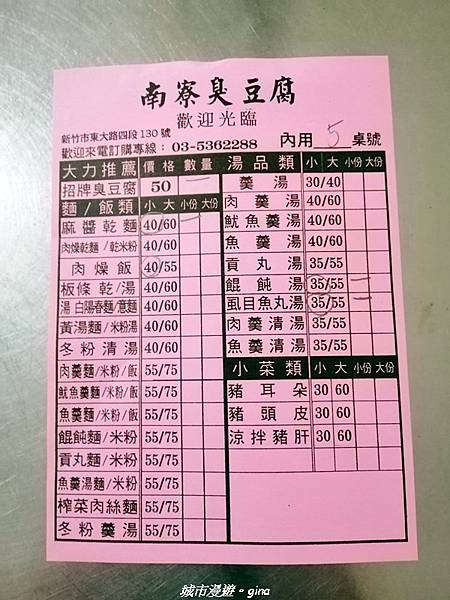 南寮臭豆腐
歡迎光臨
新竹市東大路四段130號
歡迎來電訂購專線：03-5362288
內用 5 桌號
大力推薦 價格 數量
招牌臭豆腐 50 一
麵/飯類 小 大 小份 大份
麻醬乾麵 40/60 一
肉燥乾麵/乾米粉 40/60
肉燥飯 40/55
板條 乾/湯 40/60
湯 白陽春麵/意麵 40/60
黃湯麵/米粉湯 40/60
冬粉清湯 40/60
肉羹麵/米粉/飯 55/75
魷魚羹麵/米粉/飯 55/75
魚羹麵/米粉/飯 55/75
餛飩麵/米粉 55/75
貢丸麵/米粉 55/75
魚羹湯麵/米粉 55/75
榨菜肉絲麵 55/75
冬粉羹湯 55/75
湯品類 小 大 小份 大份
羹湯 30/40
肉羹湯 40/60
魷魚羹湯 40/60
魚羹湯 40/60
貢丸湯 35/55
餛飩湯 35/55
虱目魚丸湯 35/55
肉羹清湯 35/55
魚羹清湯 35/55
小菜類 小 大 小份 大份
豬耳朵 30 60
豬頭皮 30 60
涼拌豬肝 30 60
城市漫遊。gina